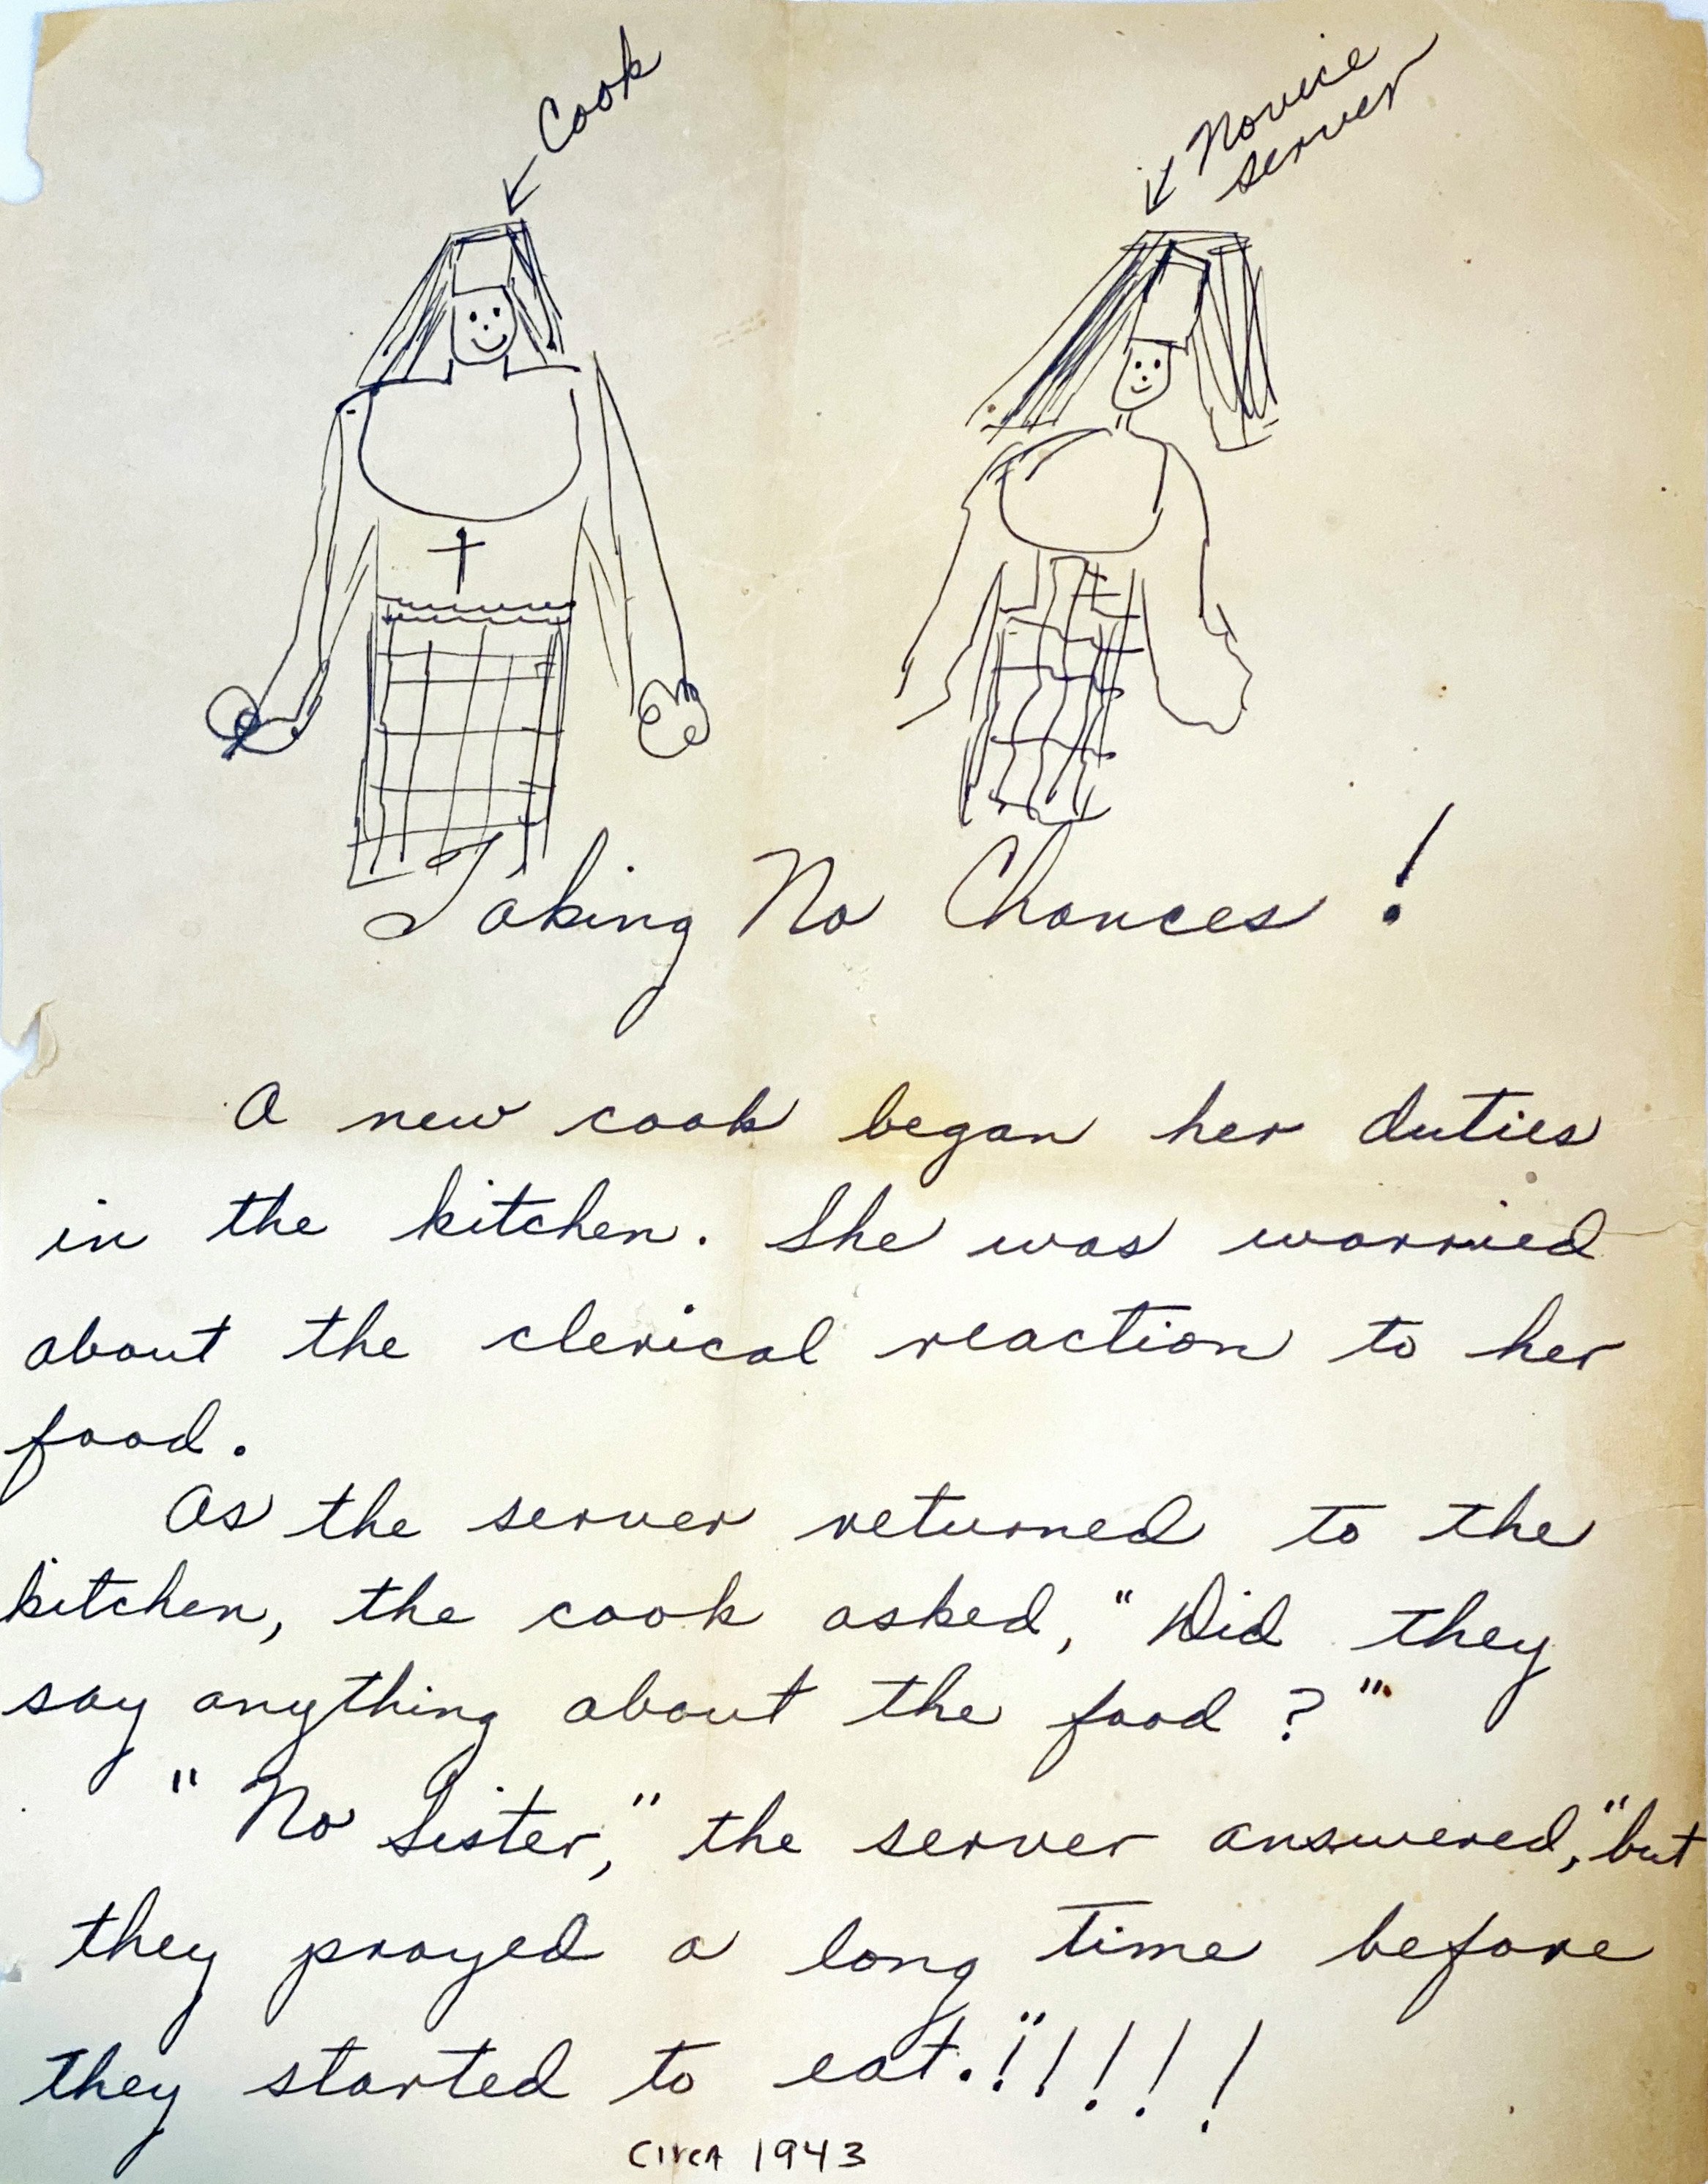 Cook
Novice
server
Taking No Chances!
A new cook began her duties
in the kitchen. She was worried
about the clerical reaction to her
food.
As the server returned to the
kitchen, the cook asked, "Did they
say anything about the food?"
"No Sister," the server answered, "but
they prayed a long time before
they started to eat."!!!!!
Circa 1943